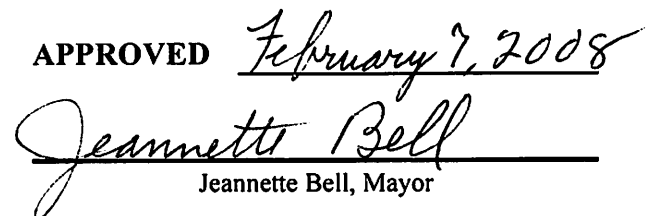 APPROVED February 7, 2008
Jeannette Bell
Jeannette Bell, Mayor